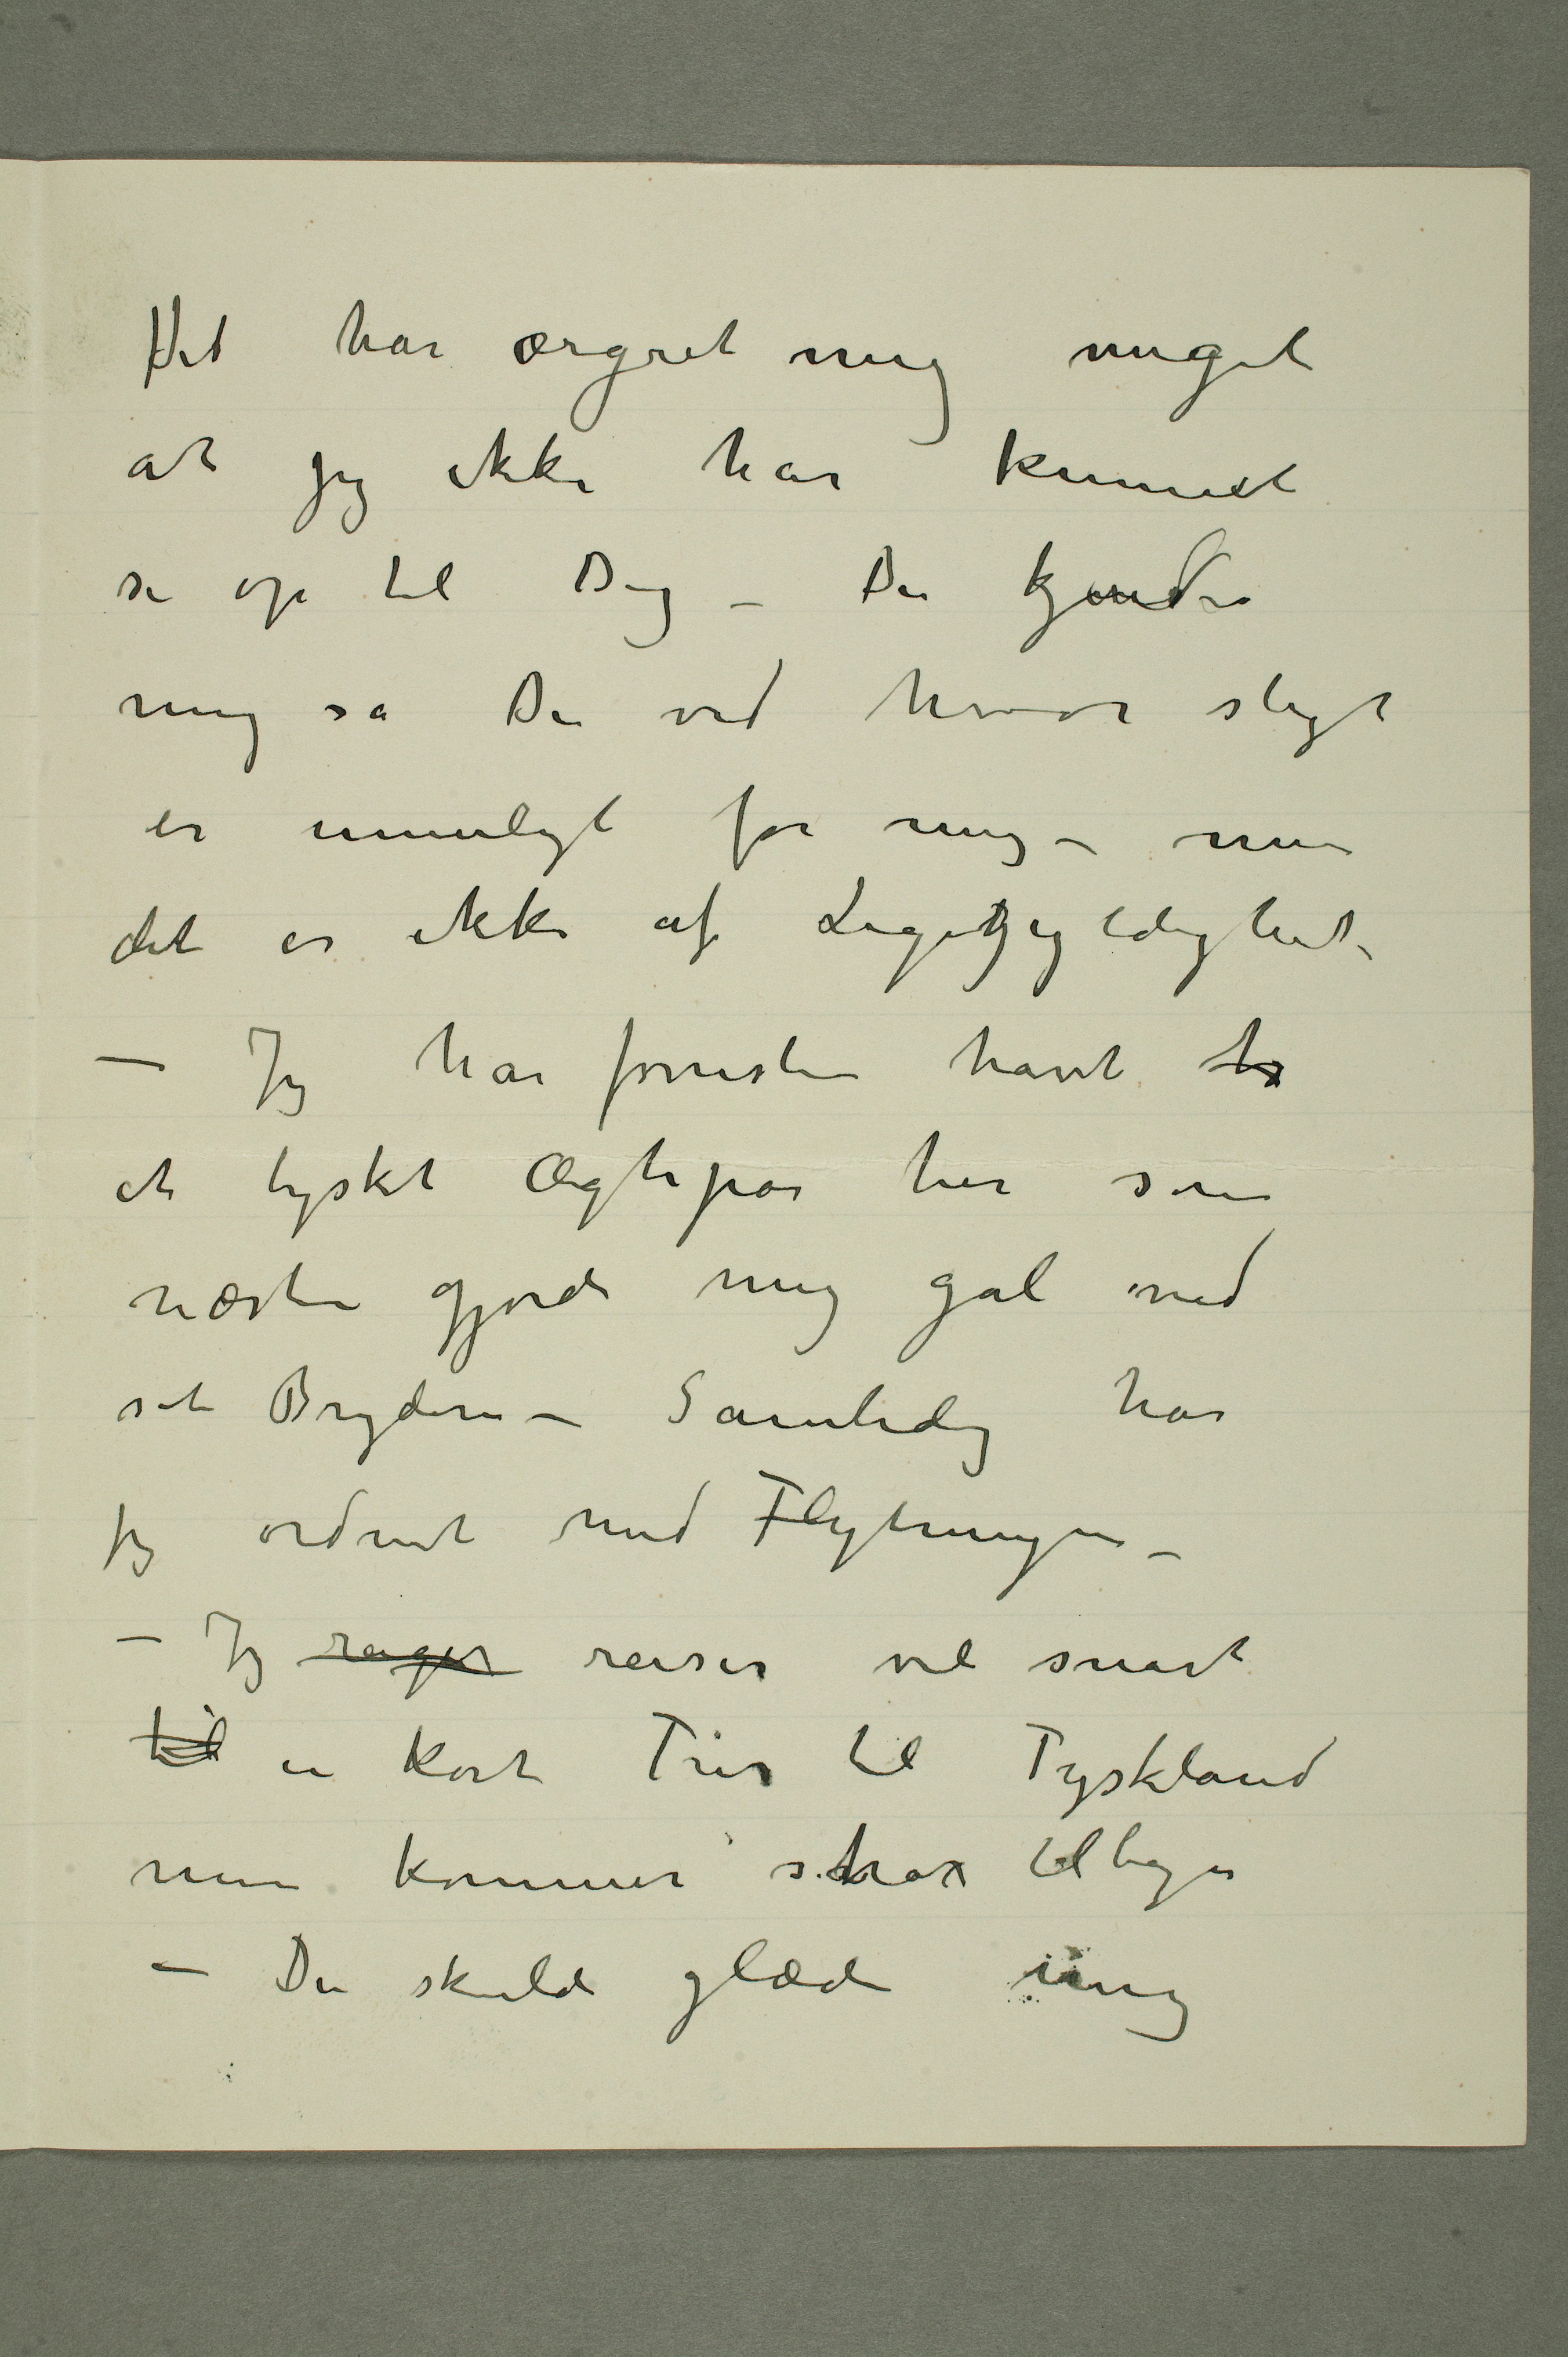 Det har ærgret mig meget
at jeg ikke har kunnet
se op til Dig – Du kjender
mig så Du ved hvor sligt
er umuligt for mig – men
det er ikke af Ligegyldighed
– Jeg har forresten havt
et tyskt Ægtepar her som
næsten gjorde mig gal med
sit Bryderi – Samtidig har
jeg ordnet med Flytningen –
– Jeg reiser vel snart
til en kort Tur til Tyskland
men kommer strax tilbage
– Du skulde glæde mig